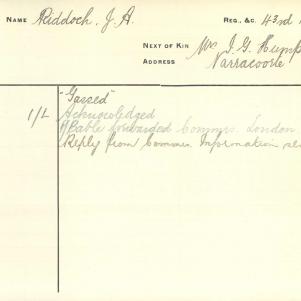 NAME Riddoch. J. A. REG., &C. 43rd
NEXT OF KIN Mrs J. G.
ADDRESS Narracoorte
"Gassed"
1/L Acknowledged
Cable forwarded Commrs. London
Reply from Commrs. Information